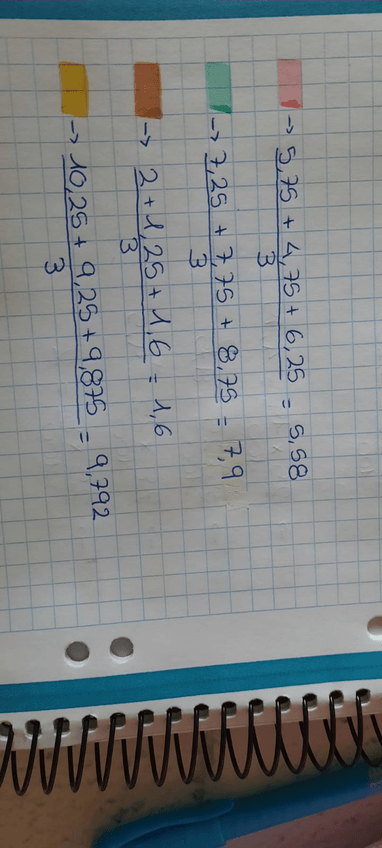 → 5,75 + 4,75 + 6,25 = 5,58
3
→ 7,25 + 7,75 + 8,75 = 7,9
3
→ 2 + 1,25 + 1,6 = 1,6
3
→ 10,25 + 9,25 + 9,875 = 9,792
3